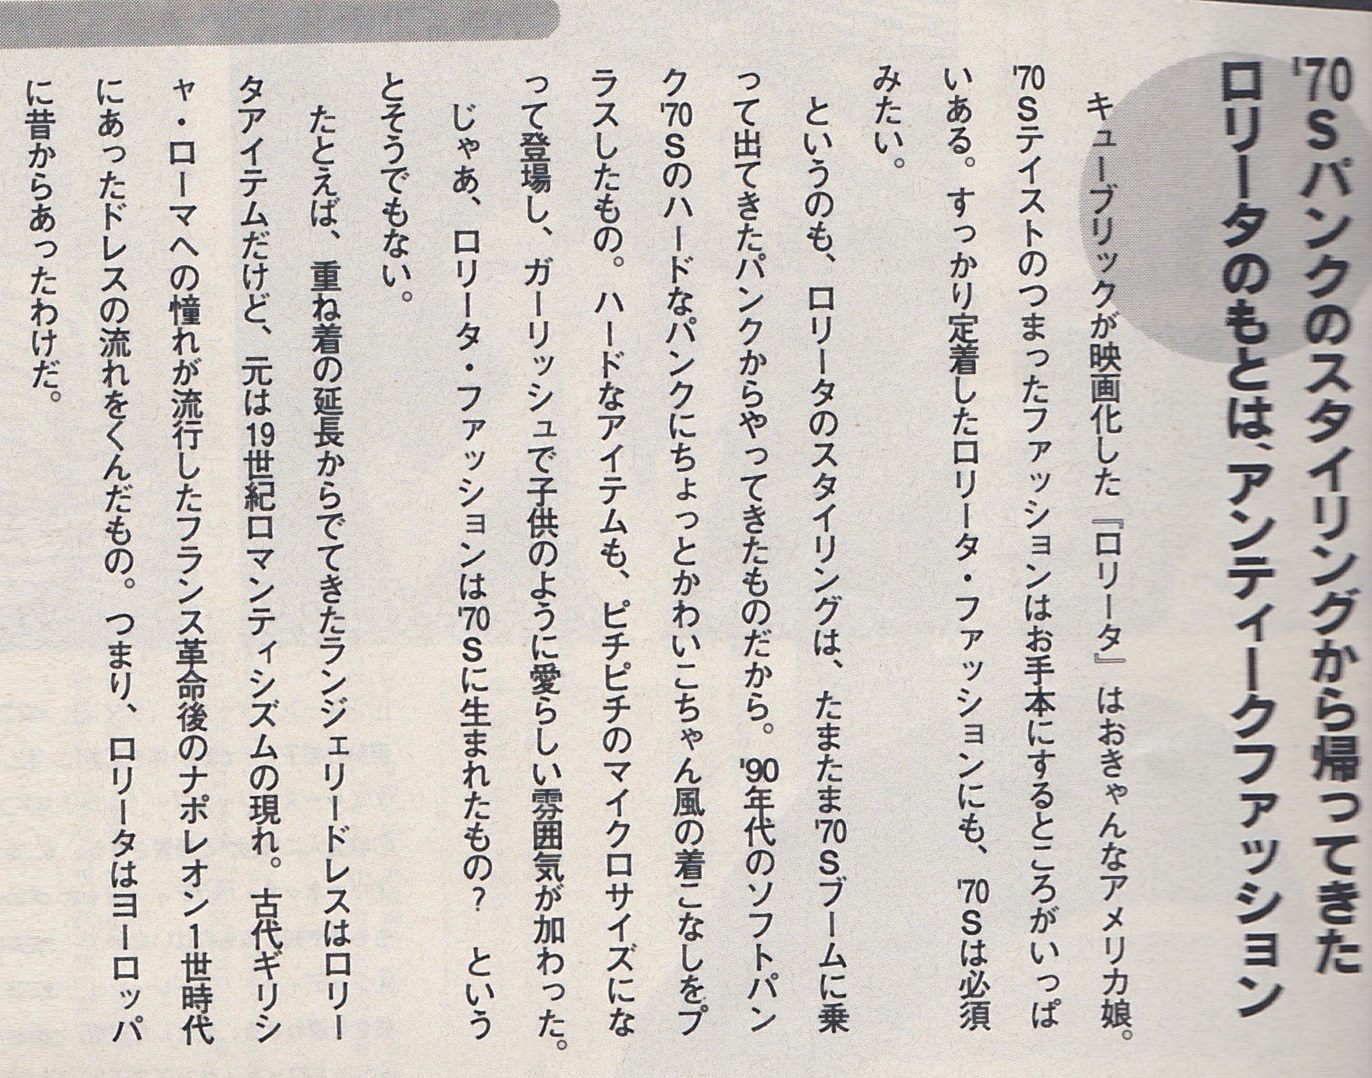 '70Sパンクのスタイリングから帰ってきた
ロリータのもとは、アンティークファッション
キューブリックが映画化した『ロリータ』はおきゃんなアメリカ娘。
'70Sテイストのつまったファッションはお手本にするところがいっぱ
いある。すっかり定着したロリータ・ファッションにも、'70Sは必須
みたい。
というのも、ロリータのスタイリングは、たまたま'70Sブームに乗
って出てきたパンクからやってきたものだから。'90年代のソフトパン
ク'70Sのハードなパンクにちょっとかわいこちゃん風の着こなしをプ
ラスしたもの。ハードなアイテムも、ピチピチのマイクロサイズにな
って登場し、ガーリッシュで子供のように愛らしい雰囲気が加わった。
じゃあ、ロリータ・ファッションは'70Sに生まれたもの？ という
とそうでもない。
たとえば、重ね着の延長からでてきたランジェリードレスはロリー
タアイテムだけど、元は19世紀ロマンティシズムの現れ。古代ギリシ
ャ・ローマへの憧れが流行したフランス革命後のナポレオン1世時代
にあったドレスの流れをくんだもの。つまり、ロリータはヨーロッパ
に昔からあったわけだ。